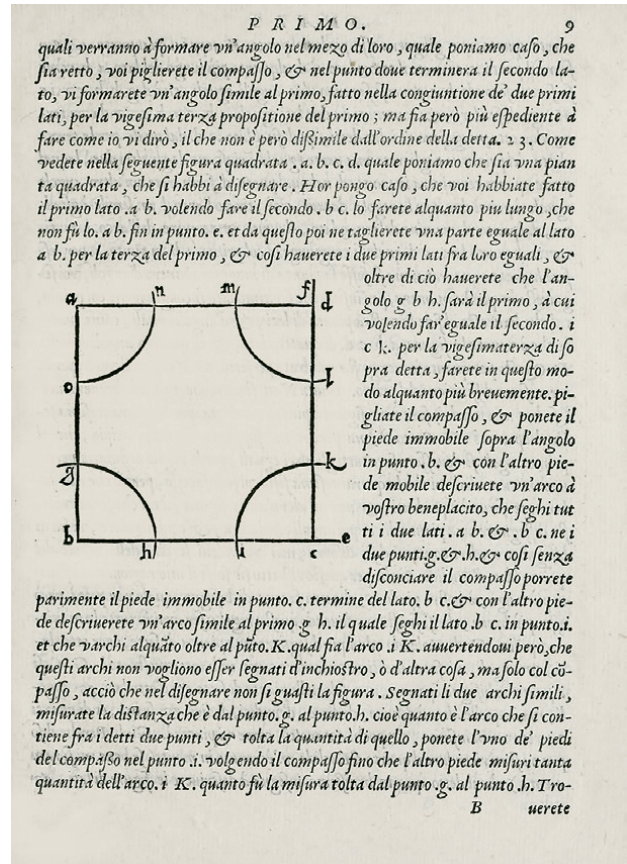 PRIMO. 9
quali verranno à formare vn'angolo nel mezo di loro, quale poniamo caso, che
sia retto, voi piglierete il compasso, & nel punto doue terminera il secondo la-
to, vi formarete vn'angolo simile al primo, fatto nella congiuntione de' due primi
lati, per la vigesima terza propositione del primo; ma fia però più espediente à
fare come io vi dirò, il che non è però dißimile dall'ordine della detta. 23. Come
vedete nella seguente figura quadrata. a. b. c. d. quale poniamo che sia vna pian
ta quadrata, che si habbi à disegnare. Hor pongo caso, che voi habbiate fatto
il primo lato. a b. volendo fare il secondo. b c. lo farete alquanto piu lungo, che
non fù lo. a b. fin in punto. e. et da questo poi ne taglierete vna parte eguale al lato
a b. per la terza del primo, & cosi hauerete i due primi lati fra loro eguali, &
oltre di ciò hauerete che l'an-
golo g b h. sarà il primo, à cui
volendo far'eguale il secondo. i
c k. per la vigesimaterza di so
pra detta, farete in questo mo-
do alquanto più breuemente. pi-
gliate il compasso, & ponete il
piede immobile sopra l'angolo
in punto. b. & con l'altro pie-
de mobile descriuete vn'arco à
vostro beneplacito, che seghi tut
ti i due lati. a b. &. b c. ne i
due punti. g. &. h. & cosi senza
disconciare il compasso porrete
a n m f d
o l
g k
b h i c e
parimente il piede immobile in punto. c. termine del lato. b c. & con l'altro pie-
de descriuerete vn'arco simile al primo g h. il quale seghi il lato. b c. in punto. i.
et che varchi alquāto oltre al pūto. K. qual fia l'arco. i K. auuertendoui però, che
questi archi non vogliono esser segnati d'inchiostro, ò d'altra cosa, ma solo col cō-
passo, acciò che nel disegnare non si guasti la figura. Segnati li due archi simili,
misurate la distanza che è dal punto. g. al punto. h. cioè quanto è l'arco che si con-
tiene fra i detti due punti, & tolta la quantità di quello, ponete l'vno de' piedi
del compaßo nel punto. i. volgendo il compasso fino che l'altro piede misuri tanta
quantità dell'arco. i K. quanto fù la misura tolta dal punto. g. al punto. h. Tro-
B uerete